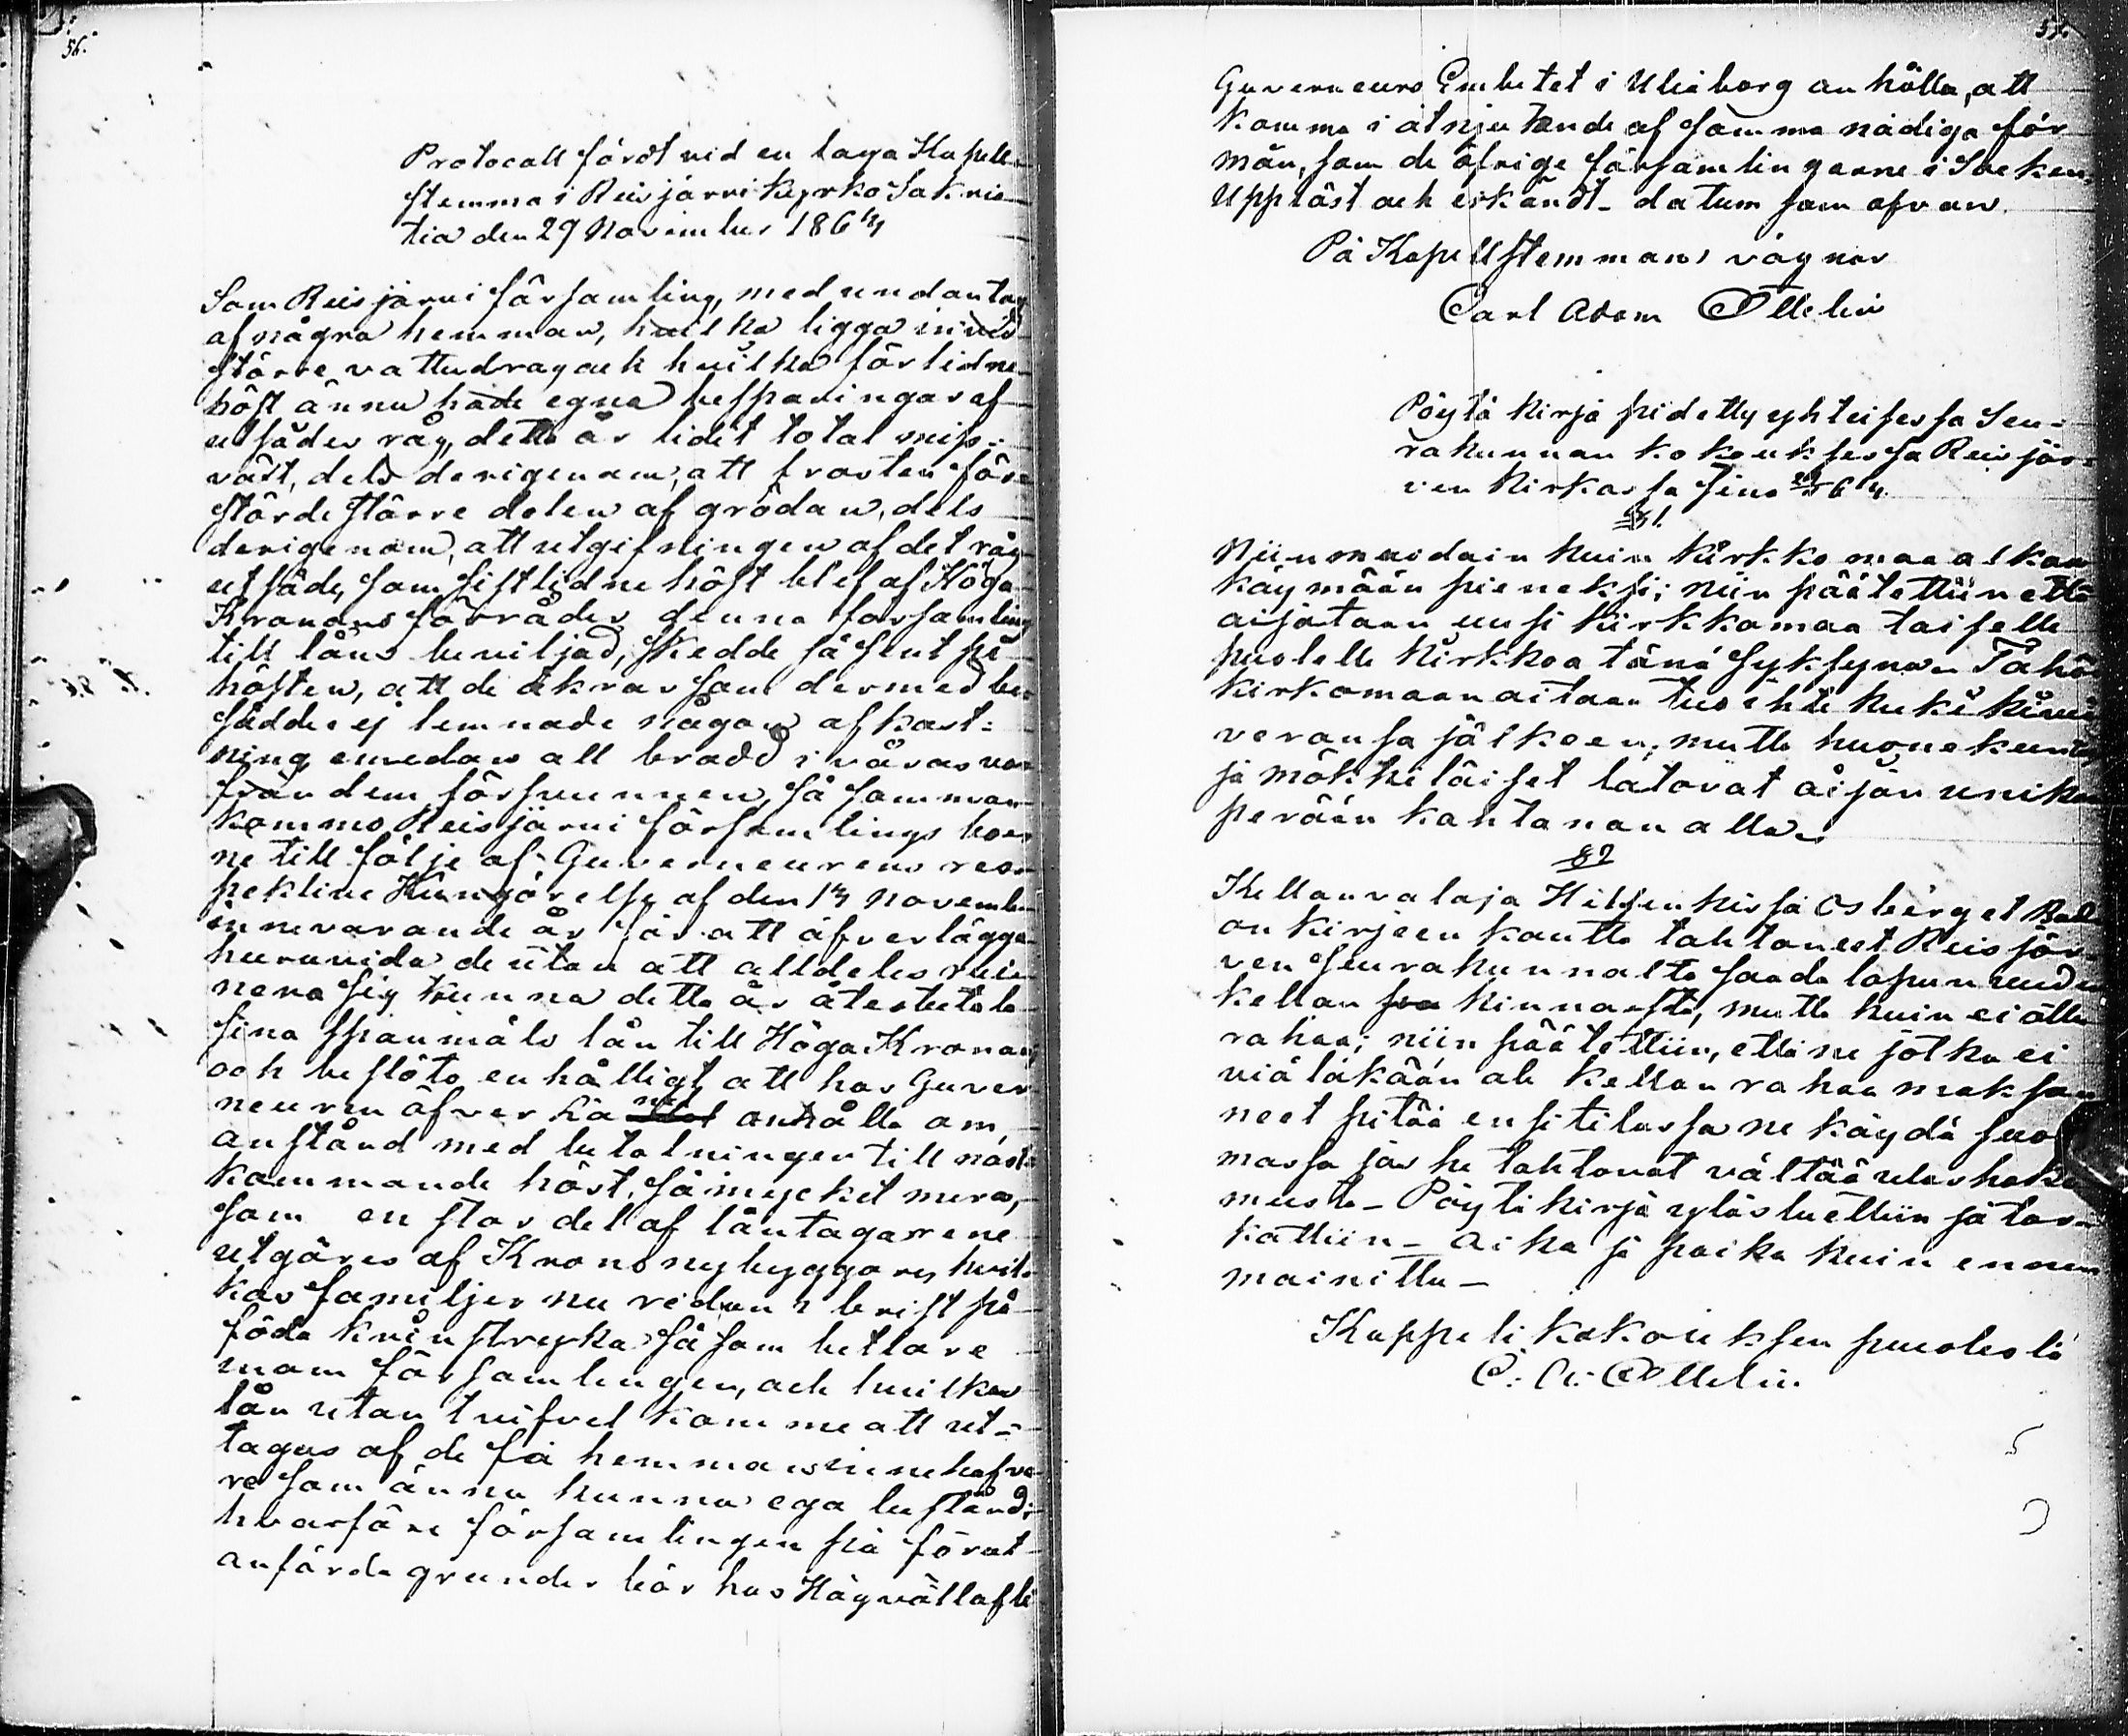 56.
Protocoll fördt vid en laga Kapell-
stemma i Reisjärvi kyrko Sakris-
tia den 29 November 1864
Som Reisjärvi församling, med undantag
af några hemman, hvilka ligga invid
större vattudrag och hvilka förlidne
höst ännu hade egna besparingar af
utsädes råg, detta år lidit total miss-
växt, dels derigenom, att frosten för-
störde större delen af grödan, dels
derigenom, att utgifningen af det råg
utsäde, som sistlidne höst blef af Höga
Kronans förråder denna församling
till låns beviljad, skedde så sent på
hösten, att de åkrar som dermed be-
sådder ej lemnade någon afkast-
ning emedan all brådd i våras var
från dem försvunnen, så samman
kommo Reisjärvi församlings boer
ne till följe af Guverneurens res-
pektive Kungörelse af den 14 November
innevarande år för att öfverlägga
huruvida de utan att alldeles rui-
nera sig kunna detta år återbetala
sina spanmåls lån till Höga Kronan
och beslöts enhälligt att hos Guver-
neuren öfver Lä anhålla om
anstånd med betalningen till näst
kommande höst, så mycket mera,
som en stor del af låntagarene
utgöres af Krononybyggare, hvil-
kas familjer nu redan i brist på
föda kringstryka såsom bettlare
inom församlingen, och hvilkas
lån utan tvifvel komme att ut-
tagas af de få hemmansinnehafva-
re som ännu kunna ega bestånd;
hvarföre församlingen på förut
anförda grunder bör hos Högvällofli
Guverneurs Embetet i Uleåborg anhålla, att
komma i åtnjutande af samma nådiga för
mån, som de öfrige församlingarne i Socken.
Uppläst och erkändt - datum som ofvan.
På Kapellstemmans vägnar
Carl Adam Ottelin
Pöytä kirja pidetty yhteisessa Seu-
rakunnan kokouksessa Reisjär-
ven Kirkossa
§1.
Niinmuodoin kuin kirkkomaa alkaa
käymään pieneksi; niin päätettiin että
aijataan uusi kirkkomaa toiselle
puolelle kirkkoa tänä syksynä. Tähän
kirkomaan aitaan kukin kiviä
veronsa jälkeen; mutta huonekunta
ja mökkiläiset latovat aijan
perään kahtanan alla.
§2
Kellonvalaja Helsinkissä Osberg et Bade
on kirjeen kautta tahtoneet Reisjär-
ven seurakunnalta saada lopun uuden
kellon hinnasta, mutta kuin ei ollu
rahaa; niin päätettiin, että ne jotka ei
viä läkään ole kellon rahaa maksa
neet pitää ensi tilassa ne käydä suo
massa jos he tahtovat välttää uloshaku
musta - Pöytäkirja ylösluettiin ja tar-
kattiin - aika ja paika kuin ennen
mainittu -
Kappeli kokouksen puolesta
C. A. Ottelin.